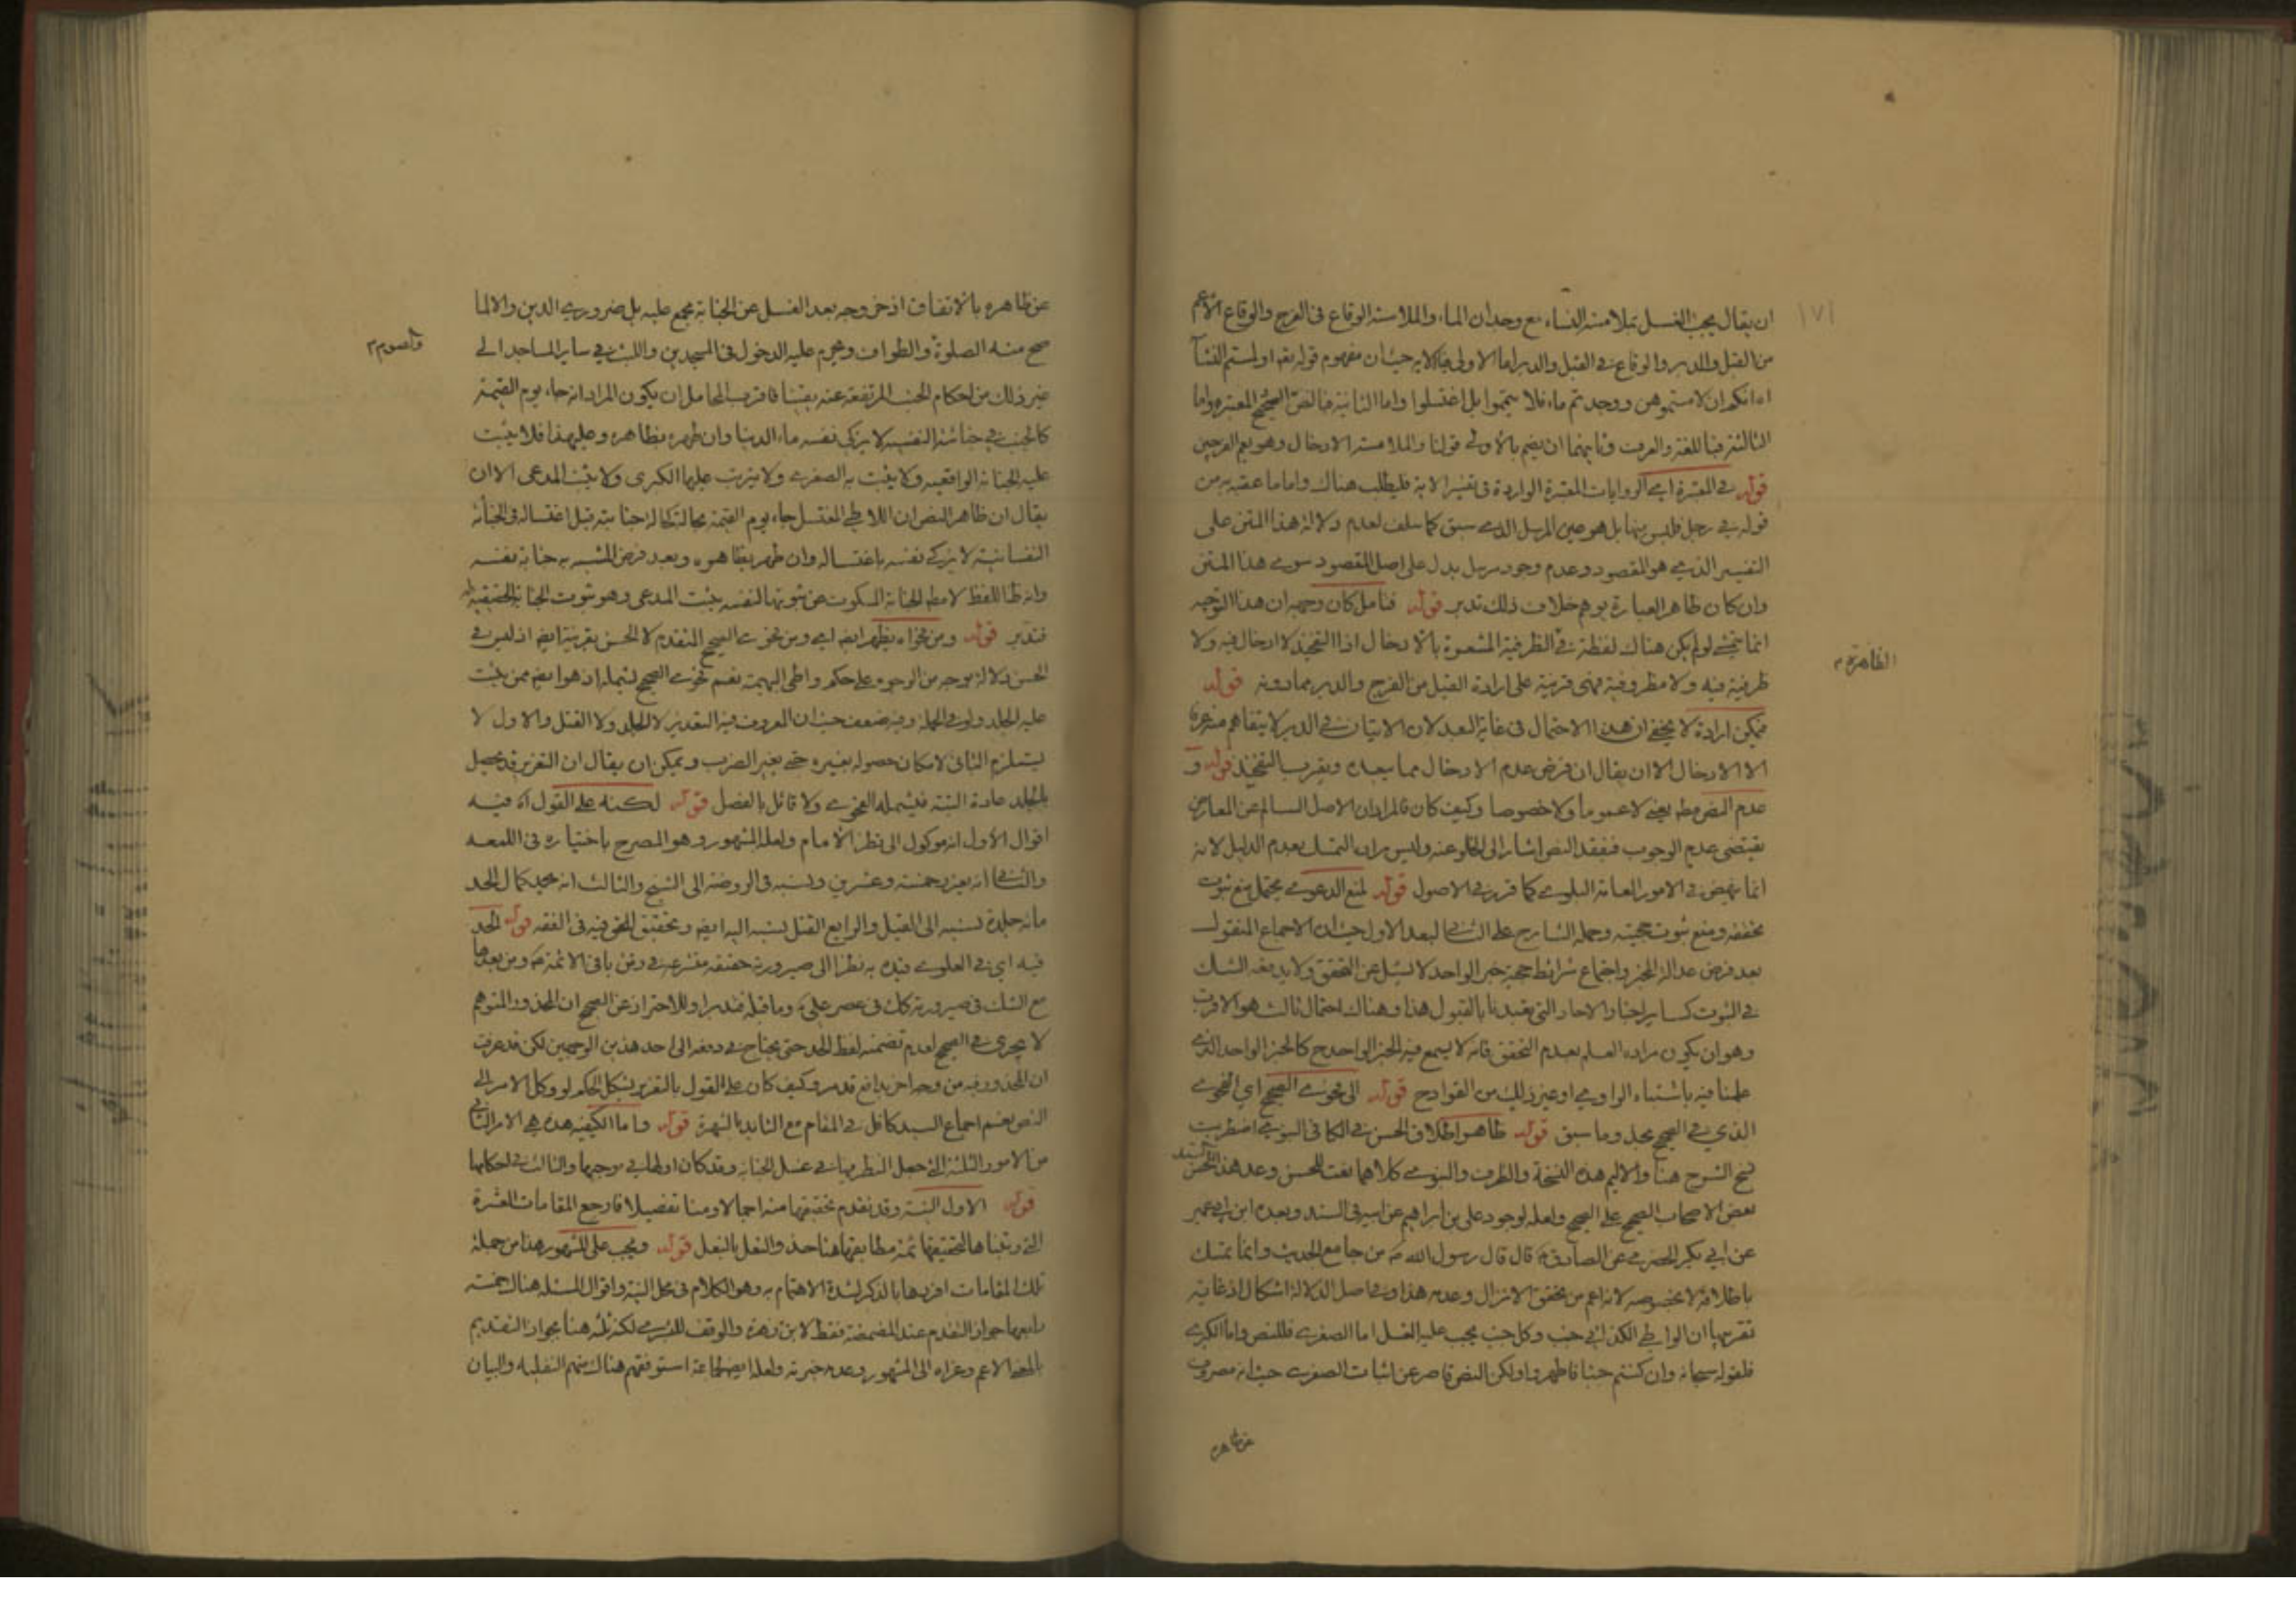 ان يقال يجب الغسل بملامسة النساء مع وجدان الماء والملامسة الوقاع فى الفرج والوقاع الاعم
من القبل والدبر والوقاع فى القبل والدبر اما الاولى فبالاية حيث ان مفهوم قوله تعه او لمستم النسآ
اه انكم ان لامستموهن ووجدتم ماء فلا تيمموا بل اغتسلوا واما الثانية فبالنص الصحيح المعتبرة واما
الثالثة فباللغة والعرف وثانيهما ان يضم بالاولى قولنا والملامسة الادخال وهو يعم الفرجين
قوله فى المعتبرة اى الروايات المعتبرة الواردة فى تفسير الاية فليطلب هناك واما ما عقبه به من
قوله فى رجل فليس منها بل هو عين المرسل الذى سبق كما سلف لعدم دلالة هذا المتن على
التفسير الذى هو المقصود وعدم وجود مرسل يدل على اصل المقصود سوى هذا المتن
وان كان ظاهر العبارة يوهم خلاف ذلك تدبر قوله فتامل كان وجهه ان هذا التوجيه
انما يتمشى لو لم يكن هناك لفظة فى الظرفية المشعرة بالادخال اذ التفخيذ لا ادخال فيه ولا
ظرفية فيه ولا مظروفية فهى قرينة على ارادة القبل من الفرج والدبر مما دونه قوله
فيمكن ارادة لا يخفى ان هذا الاحتمال فى غاية البعد لان الاتيان فى الدبر لا يتفاهم منه عرفا
الا الادخال الا ان يقال ان فرض عدم الادخال مما يبعده ويقرب التفخيذ قوله و
عدم النص مطه يعنى لا عموما ولا خصوصا وكيف كان فالمراد ان الاصل السالم عن المعارض
يقتضى عدم الوجوب ففقد النص اشار الى الخلو عنه وليس مراد التمسك بعدم الدليل لانه
انما ينهض فى الامور العامة البلوى كما قرر فى الاصول قوله لمنع الدعوى يحتمل منع ثبوت
تحققه ومنع ثبوت حجيته وحمله الشارح على الثانى لبعد الاول حيث ان الاجماع المنقول
بعد فرض عدالة المخبر واجتماع شرائط حجية خبر الواحد لا يسئل عن التحقق ولا يدفعه الشك
فى الثبوت كساير اخبار الاحاد التى تعبدنا بالقبول هذا وهناك احتمال ثالث هو الاقرب
وهو ان يكون مراده العلم بعدم التحقق فانه لا يسمع فيه الخبر الواحد ح كالخبر الواحد الذى
علمنا فيه باشتباه الراوى او غير ذلك من القوادح قوله الى فحوى الصحيح اى الفحوى
الذى فى الصحيح بجلد وما سبق قوله ظاهر اطلاق الحسن فى الكافى النبوى اضطربت
نسخ الشرح هنا والاليم هذه النسخة والظرف والنبوى كلاهما نعت للحسن وعد هذا الحسن
بعض الاصحاب الصحيح على الصحيح ولعله لوجود على بن ابراهيم عن ابيه فى السند وبعده ابن ابى عمير
عن ابى بكر الحضرمى عن الصادق ع قال قال رسول الله ص من جامع الحديث وانما تمسك
باطلاقه لا بخصوصه لانه اعم من تحقق الانزال وعدمه هذا وفى اصل الدلالة اشكال اذ غاية
تقريبها ان الواطى الكذائى جنب وكل جنب يجب عليه الغسل اما الصغرى فللنص واما الكبرى
فلقوله سبحانه وان كنتم جنبا فاطهروا ولكن النص قاصر عن اثبات الصغرى حيث انه مصروف
عن ظاهره
الظاهرة
١٧١
عن ظاهره بالاتفاق اذ خروجه بعد الغسل عن الجنابة مجمع عليه بل ضرورى الدين والا لما
صح منه الصلوة والطواف وحرم عليه الدخول فى المسجدين واللبث فى ساير المساجد الى
والصوم
غير ذلك من احكام الجنب المرتفعة عنه يقينا فاقرب المحامل ان يكون المراد انه جاء يوم القيمة
كالجنب فى خباثته النفسية لا يزكى نفسه ماء الدنيا وان طهر به ظاهره وعلى هذا فلا يثبت
عليه الجنابة الواقعيه ولا يثبت به الصغرى ولا يترتب عليها الكبرى ولا يثبت المدعى الا ان
يقال ان ظاهر النص ان اللاطى المغتسل جاء يوم القيمة بحالة كحالة جنابته قبل اغتساله فى الجنابة
النفسانية لا يزكى نفسه باغتساله وان طهر به ظاهره وبعد فرض المشبه به جنابة نفسه
وانه ظ اللفظ لا مطه الجنابة المسكوت عن ثبوتها لنفسه يثبت المدعى وهو ثبوت الجنابة الحقيقية له
فتدبر قوله ومن فحواه يظهر ايضه اى ومن فحوى الصحيح المتقدم لا الحسن بقرينة ايضه اذ ليس فى
الحسن دلالة بوجه من الوجوه على حكم واطى البهيمة نعم فحوى الصحيح يشمله اذ هو ايضه ممن يثبت
عليه الجلد ولو فى الجملة وفيه ضعف حيث ان المعروف فيه التعذير لا الجلد ولا القتل والاول لا
يستلزم الثانى لامكان حصوله بغيره حتى بغير الضرب ويمكن ان يقال ان التعزير قد يحصل
بالجلد عادة البتة فيشمله الفحوى ولا قائل بالفصل قوله لكنه على القول اه فيه
اقوال الاول انه موكول الى نظر الامام ولعله المشهور وهو المصرح باختياره فى اللمعه
والثانى انه يعزر بخمسة وعشرين ونسبه فى الروضة الى الشيخ والثالث انه يحد كمال الحد
مائة جلدة نسبه الى القيل والرابع القتل نسبه اليه ايضه وتحقيق الحق فيه فى الفقه قوله الحد
فيه اى فى العلوى قيده به نظرا الى صيرورته حقيقه متشرعه فى زمن باقى الائمة ع ومن بعدها
مع الشك فى صيرورته كك فى عصر على ع وما قبله فتدبر او للاحتراز عن الصحيح ان المحذور المتوهم
لا يجرى فى الصحيح لعدم تضمنه لفظ الحد حتى يحتاج فى دفعه الى احد هذين الوجهين لكن قد عرفت
ان المحذور فيه من وجه اخر بدافع قد مر وكيف كان على القول بالتعزير يشكل الحكم لو وكل الامر الى
النص نعم اجماع السيد كافل فى المقام مع التايد بالشهرة قوله واما الكيفية هذه هى الامر الثانى
من الامور الثلثة التى جعل النظر فيها فى غسل الجنابة وقد كان اولها فى موجبها والثالث فى احكامها
قوله الاول النية وقد تقدم تحقيقها منه اجمالا ومنا تفصيلا فارجع المقامات العشرة
التى رتبناها لتحقيقها ثمة مطابقها هنا حذو النعل بالنعل قوله ويجب على المشهور هذا من جملة
تلك المقامات افردها بالذكر لشدة الاهتمام به وهو الكلام فى محل النية واقوال المسئلة هناك خمسة
رابعها جواز التقدم عند المضمضة فقط لابن زهرة والوقف للبشرى لكنه ثلثه هنا بجواز التقديم
بالمعنى الاعم وعزاه الى المشهور وعدمه خيرته ولعله ايضه لجماعة استوفقهم هناك منهم النفلية والبيان